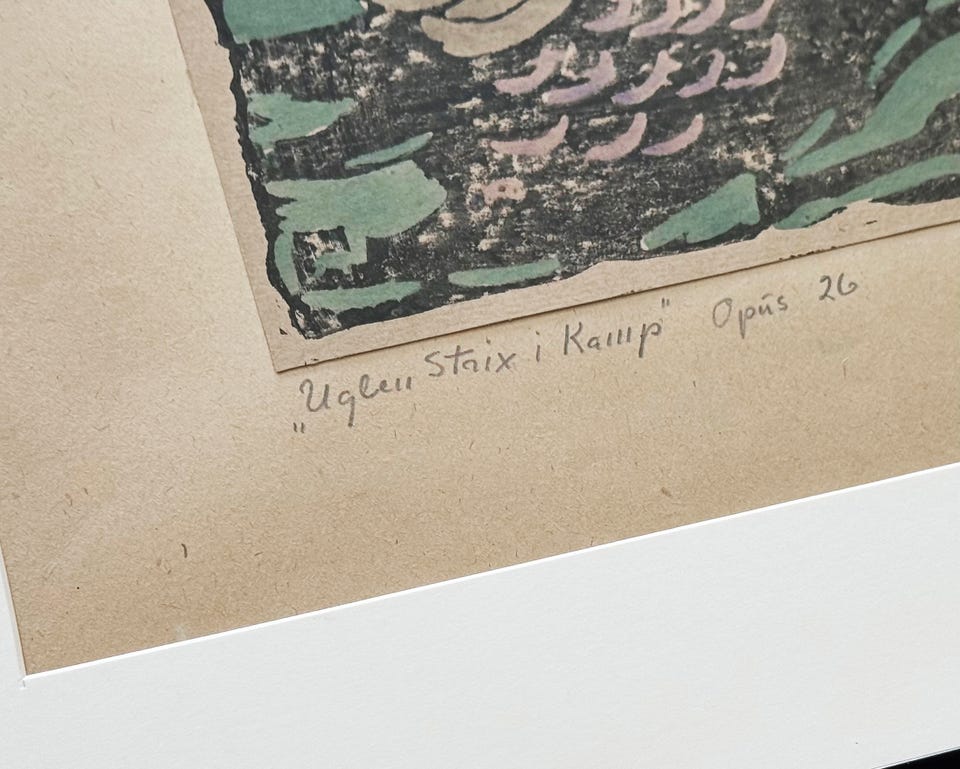 "Uglen Strix i Kamp" Opus 26